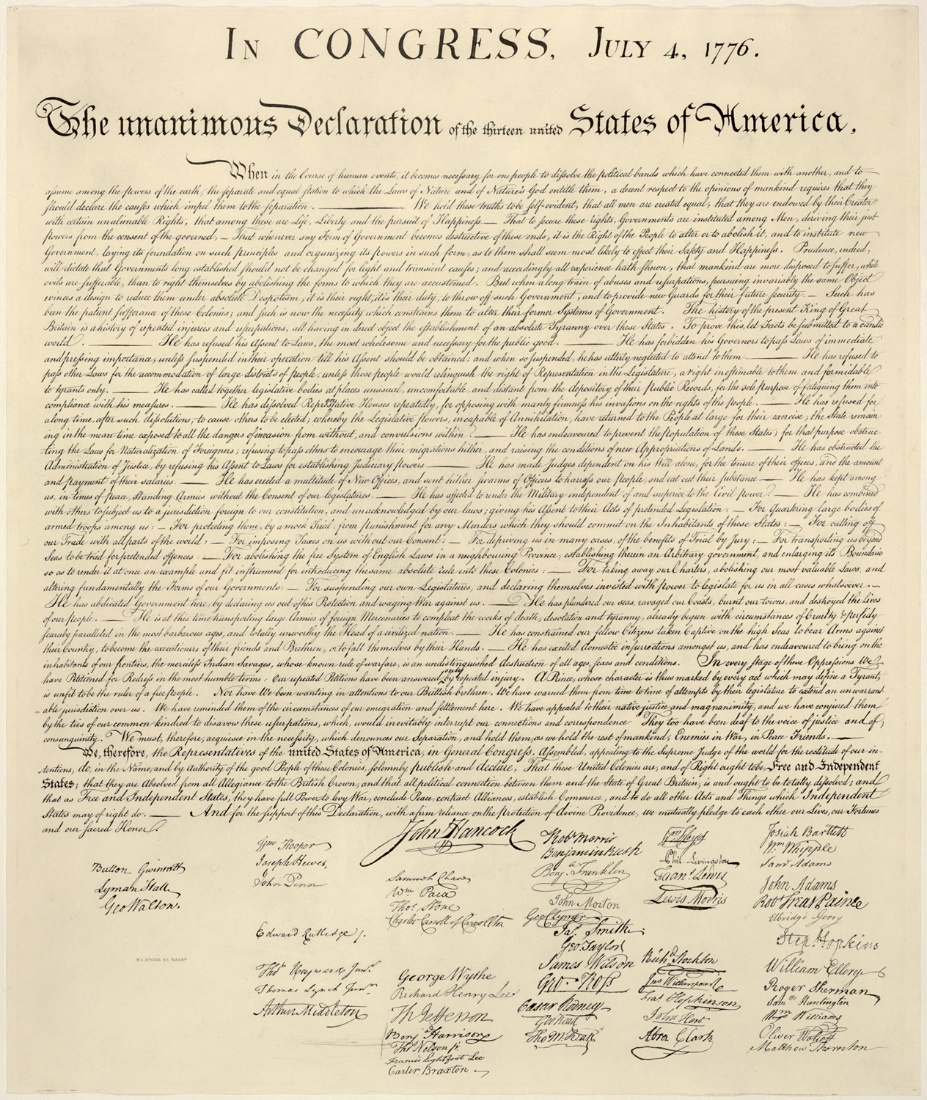 In CONGRESS, July 4, 1776.
The unanimous Declaration of the thirteen united States of America,
When in the Course of human events, it becomes necessary for one people to dissolve the political bands which have connected them with another, and to
assume among the powers of the earth, the separate and equal station to which the Laws of Nature and of Nature's God entitle them, a decent respect to the opinions of mankind requires that they
should declare the causes which impel them to the separation. — We hold these truths to be self-evident, that all men are created equal, that they are endowed by their Creator
with certain unalienable Rights, that among these are Life, Liberty and the pursuit of Happiness. — That to secure these rights, Governments are instituted among Men, deriving their just
powers from the consent of the governed, — That whenever any Form of Government becomes destructive of these ends, it is the Right of the People to alter or to abolish it, and to institute new
Government, laying its foundation on such principles and organizing its powers in such form, as to them shall seem most likely to effect their Safety and Happiness. Prudence, indeed,
will dictate that Governments long established should not be changed for light and transient causes; and accordingly all experience hath shewn, that mankind are more disposed to suffer, while
evils are sufferable, than to right themselves by abolishing the forms to which they are accustomed. But when a long train of abuses and usurpations, pursuing invariably the same Object
evinces a design to reduce them under absolute Despotism, it is their right, it is their duty, to throw off such Government, and to provide new Guards for their future security. — Such has
been the patient sufferance of these Colonies; and such is now the necessity which constrains them to alter their former Systems of Government. The history of the present King of Great
Britain is a history of repeated injuries and usurpations, all having in direct object the establishment of an absolute Tyranny over these States. To prove this, let Facts be submitted to a candid
world. — He has refused his Assent to Laws, the most wholesome and necessary for the public good. — He has forbidden his Governors to pass Laws of immediate
and pressing importance, unless suspended in their operation till his Assent should be obtained; and when so suspended, he has utterly neglected to attend to them. — He has refused to
pass other Laws for the accommodation of large districts of people, unless those people would relinquish the right of Representation in the Legislature, a right inestimable to them and formidable
to tyrants only. — He has called together legislative bodies at places unusual, uncomfortable, and distant from the depository of their public Records, for the sole purpose of fatiguing them into
compliance with his measures. — He has dissolved Representative Houses repeatedly, for opposing with manly firmness his invasions on the rights of the people. — He has refused for
a long time, after such dissolutions, to cause others to be elected; whereby the Legislative powers, incapable of Annihilation, have returned to the People at large for their exercise; the State remain
ing in the mean time exposed to all the dangers of invasion from without, and convulsions within. — He has endeavoured to prevent the population of these States; for that purpose obstruc
ting the Laws for Naturalization of Foreigners; refusing to pass others to encourage their migrations hither, and raising the conditions of new Appropriations of Lands. — He has obstructed the
Administration of Justice, by refusing his Assent to Laws for establishing Judiciary powers. — He has made Judges dependent on his Will alone, for the tenure of their offices, and the amount
and payment of their salaries. — He has erected a multitude of New Offices, and sent hither swarms of Officers to harrass our people, and eat out their substance. — He has kept among
us, in times of peace, Standing Armies without the Consent of our legislatures. — He has affected to render the Military independent of and superior to the Civil power. — He has combined
with others to subject us to a jurisdiction foreign to our constitution, and unacknowledged by our laws; giving his Assent to their Acts of pretended Legislation: — For Quartering large bodies of
armed troops among us: — For protecting them, by a mock Trial, from punishment for any Murders which they should commit on the Inhabitants of these States: — For cutting off
our Trade with all parts of the world: — For imposing Taxes on us without our Consent: — For depriving us in many cases, of the benefits of Trial by Jury: — For transporting us beyond
Seas to be tried for pretended offences — For abolishing the free System of English Laws in a neighbouring Province, establishing therein an Arbitrary government, and enlarging its Boundaries
so as to render it at once an example and fit instrument for introducing the same absolute rule into these Colonies: — For taking away our Charters, abolishing our most valuable Laws, and
altering fundamentally the Forms of our Governments: — For suspending our own Legislatures, and declaring themselves invested with power to legislate for us in all cases whatsoever. —
He has abdicated Government here, by declaring us out of his Protection and waging War against us. — He has plundered our seas, ravaged our Coasts, burnt our towns, and destroyed the lives
of our people. — He is at this time transporting large Armies of foreign Mercenaries to compleat the works of death, desolation and tyranny, already begun with circumstances of Cruelty & perfidy
scarcely paralleled in the most barbarous ages, and totally unworthy the Head of a civilized nation. — He has constrained our fellow Citizens taken Captive on the high Seas to bear Arms against
their Country, to become the executioners of their friends and Brethren, or to fall themselves by their Hands. — He has excited domestic insurrections amongst us, and has endeavoured to bring on the
inhabitants of our frontiers, the merciless Indian Savages, whose known rule of warfare, is an undistinguished destruction of all ages, sexes and conditions. In every stage of these Oppressions We
have Petitioned for Redress in the most humble terms: Our repeated Petitions have been answered only by repeated injury. A Prince, whose character is thus marked by every act which may define a Tyrant,
is unfit to be the ruler of a free people. Nor have We been wanting in attentions to our Brittish brethren. We have warned them from time to time of attempts by their legislature to extend an unwarrant
able jurisdiction over us. We have reminded them of the circumstances of our emigration and settlement here. We have appealed to their native justice and magnanimity, and we have conjured them
by the ties of our common kindred to disavow these usurpations, which, would inevitably interrupt our connections and correspondence They too have been deaf to the voice of justice and of
consanguinity. We must, therefore, acquiesce in the necessity, which denounces our Separation, and hold them, as we hold the rest of mankind, Enemies in War, in Peace Friends. —
We, therefore, the Representatives of the united States of America, in General Congress, Assembled, appealing to the Supreme Judge of the world for the rectitude of our in-
tentions, do, in the Name, and by Authority of the good People of these Colonies, solemnly publish and declare, That these United Colonies are, and of Right ought to be Free and Independent
States; that they are Absolved from all Allegiance to the British Crown, and that all political connection between them and the State of Great Britain, is and ought to be totally dissolved; and
that as Free and Independent States, they have full Power to levy War, conclude Peace, contract Alliances, establish Commerce, and to do all other Acts and Things which Independent
States may of right do. — And for the support of this Declaration, with a firm reliance on the protection of divine Providence, we mutually pledge to each other our Lives, our Fortunes
and our sacred Honor.
Button Gwinnett
Lyman Hall
Geo Walton.
Wm Hooper
Joseph Hewes,
John Penn
Edward Rutledge /.
Thos Heyward Junr.
Thomas Lynch Junr.
Arthur Middleton
John Hancock
Samuel Chase
Wm Paca
Thos Stone
Charles Carroll of Carrollton
George Wythe
Richard Henry Lee
Th Jefferson
Benj Harrison
Thos Nelson jr
Francis Lightfoot Lee
Carter Braxton
Robt Morris
Benjamin Rush
Benja Franklin
John Morton
Geo Clymer
Jas Smith
Geo Taylor
James Wilson
Geo Ross
Caesar Rodney
Geo Read
Tho M:Kean
Wm Floyd
Phil. Livingston
Frans Lewis
Lewis Morris
Richd Stockton
Jno Witherspoon
Fras Hopkinson
John Hart
Abra Clark
Josiah Bartlett
Wm Whipple
Saml Adams
John Adams
Robt Treat Paine
Elbridge Gerry
Step Hopkins
William Ellery
Roger Sherman
Saml Huntington
Wm Williams
Oliver Wolcott
Matthew Thornton